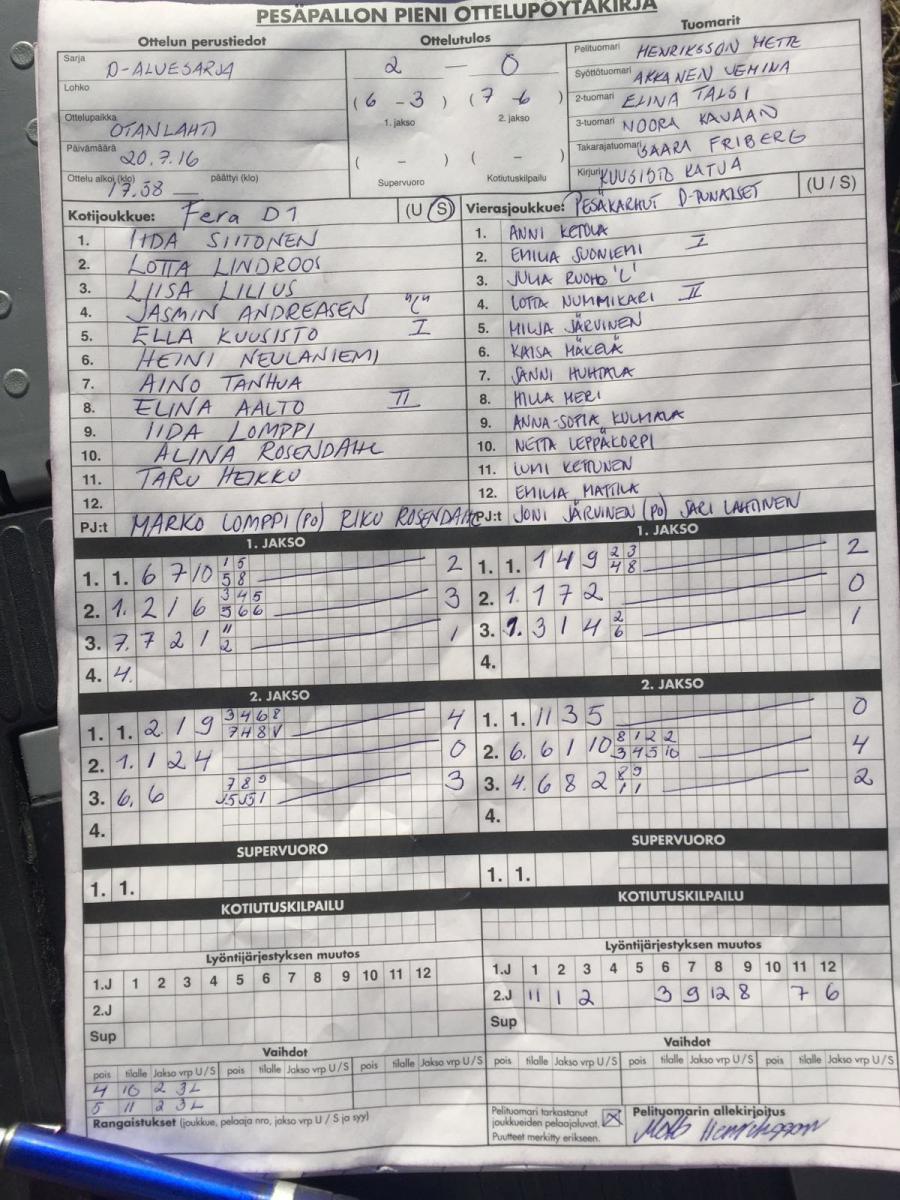 PESÄPALLON PIENI OTTELUPÖYTÄKIRJA
Ottelun perustiedot
Sarja D-ALUESARJA
Lohko
Ottelupaikka OTANLAHTI
Päivämäärä 20.7.16
Ottelu alkoi (klo) 17.58 päättyi (klo)
Ottelutulos
2 – 0
(6 - 3) (7 - 6)
1. jakso 2. jakso
( - ) ( - )
Supervuoro Kotiutuskilpailu
Tuomarit
Pelituomari HENRIKSSON METTE
Syöttötuomari AKKANEN JEMINA
2-tuomari ELINA TALSI
3-tuomari NOORA KAVAAN
Takarajatuomari SAARA FRIBERG
Kirjuri KUUSISTO KATJA
Kotijoukkue: Fera D1 (U / S)
1. IIDA SIITONEN
2. LOTTA LINDROOS
3. LIISA LILIUS
4. JASMIN ANDREASEN "L"
5. ELLA KUUSISTO I
6. HEINI NEULANIEMI
7. AINO TANHUA
8. ELINA AALTO II
9. IIDA LOMPPI
10. ALINA ROSENDAHL
11. TARU HEIKKU
12.
PJ:t MARKO LOMPPI (PO) RIKU ROSENDAHL
Vierasjoukkue: PESÄKARHUT D-PUNAISET (U / S)
1. ANNI KETOLA
2. EMILIA SUONIEMI I
3. JULIA RUOHO 'L'
4. LOTTA NUMMIKARI II
5. MILJA JÄRVINEN
6. KAISA MÄKELÄ
7. SANNI HUHTALA
8. HILLA MERI
9. ANNA-SOFIA KULMALA
10. NETTA LEPPÄKORPI
11. LUMI KETTUNEN
12. EMILIA MATTILA
PJ:t JONI JÄRVINEN (PO) SARI LAHTINEN
1. JAKSO
1. 1. 6 7 10 1 5 2
5 8
2. 1. 2 1 6 3 4 5 3
5 6 6
3. 7. 7 2 1 11 1
2
4. 4.
1. JAKSO
1. 1. 1 4 9 2 3 2
4 8
2. 1. 1 7 2 0
3. 9. 3 1 4 2 1
6
4.
2. JAKSO
1. 1. 2 1 9 3 4 6 8 4
7 4 8 V
2. 1. 1 2 4 0
3. 6. 6 7 8 9 3
4.
2. JAKSO
1. 1. 11 3 5 0
2. 6. 6 1 10 8 1 2 2 4
3 4 5 10
3. 4. 6 8 2 8 9 2
1 1
4.
SUPERVUORO
1. 1.
SUPERVUORO
1. 1.
KOTIUTUSKILPAILU
KOTIUTUSKILPAILU
Lyöntijärjestyksen muutos
1.J 1 2 3 4 5 6 7 8 9 10 11 12
2.J
Sup
Lyöntijärjestyksen muutos
1.J 1 2 3 4 5 6 7 8 9 10 11 12
2.J 11 1 2 3 9 12 8 7 6
Sup
Vaihdot
pois tilalle Jakso vrp U / S pois tilalle Jakso vrp U / S pois tilalle Jakso vrp U / S
4 10 2 3L
5 11 2 3L
Rangaistukset (joukkue, pelaaja nro, jakso vrp U / S ja syy)
Vaihdot
pois tilalle Jakso vrp U / S pois tilalle Jakso vrp U / S pois tilalle Jakso vrp U / S
Pelituomari tarkastanut
joukkueiden pelaajaluvat.
Puutteet merkitty erikseen.
Pelituomarin allekirjoitus
Henriksson